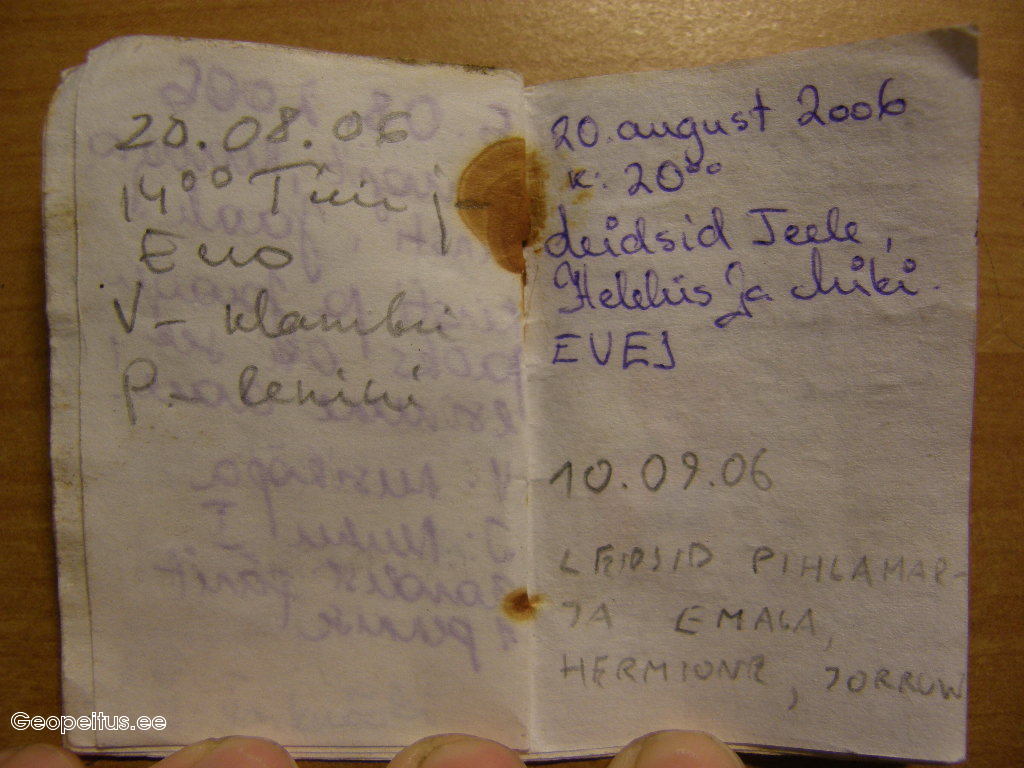 20.08.06
14°° Tiiu j-
Eno
V- klambri
P- lenini
20. august 2006
K: 20°°
Leidsid Teele,
Hekkis ja Miki.
EVEJ
10.09.06
LEIDSID PIHLAMAR-
JA EMAGA,
HERMIONE, JORROW
Geopeitus.ee